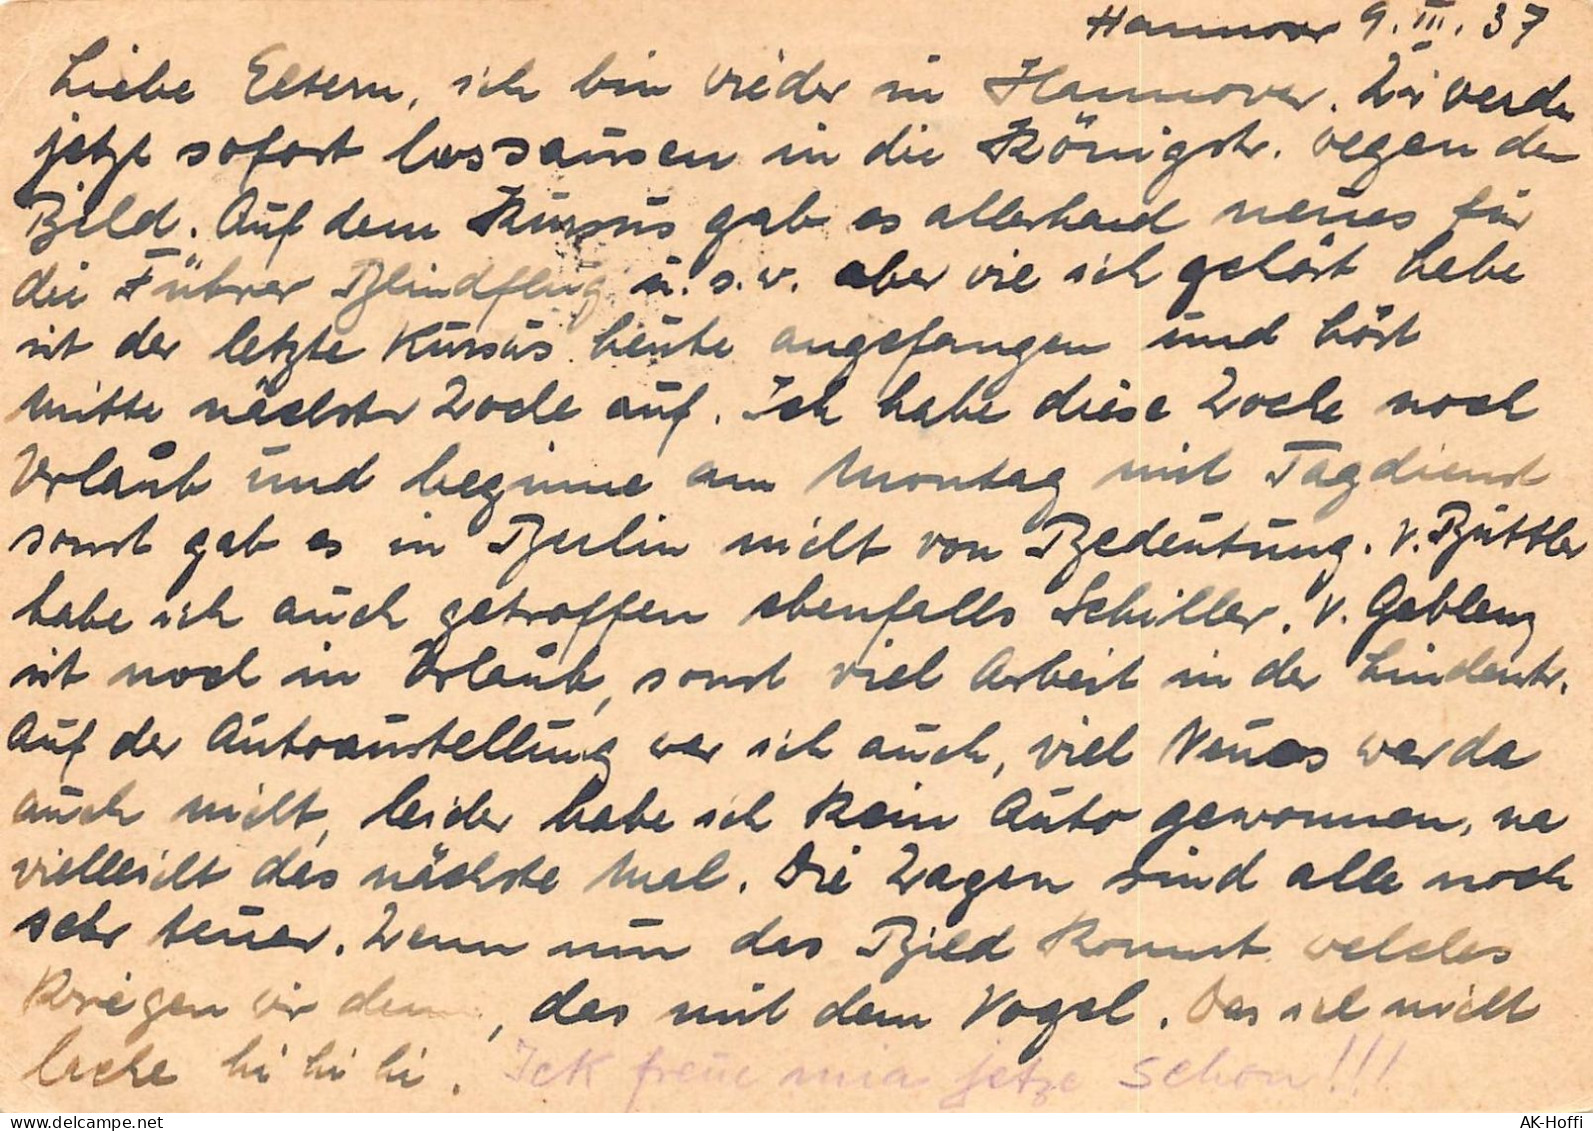 Hannover 9. III. 37
Liebe Eltern, ich bin wieder in Hannover. Wir werden
jetzt sofort lossausen in die Königstr. wegen dem
Bild. Auf dem Kursus gab es allerhand neues für
die Führer Blindflug u. s. w. aber wie ich gehört habe
ist der letzte Kursus heute angefangen und hört
Mitte nächster Woche auf. Ich habe diese Woche noch
Urlaub und beginne am Montag mit Tagdienst
sonst gab es in Berlin nicht von Bedeutung. v. Buttler
habe ich auch getroffen ebenfalls Schiller. v. Gablenz
ist noch in Urlaub, sonst viel Arbeit in der Lindenstr.
Auf der Autoaustellung war ich auch, viel Neues war da
auch nicht, leider habe ich kein Auto gewonnen, na
vielleicht das nächste Mal. Die Wagen sind alle noch
sehr teuer. Wenn nun das Bild kommt welches
kriegen wir denn, das mit dem Vogel. Das ich nicht
lache hi hi hi. Ick freue mia jetze schon!!!
AK-Hoffi